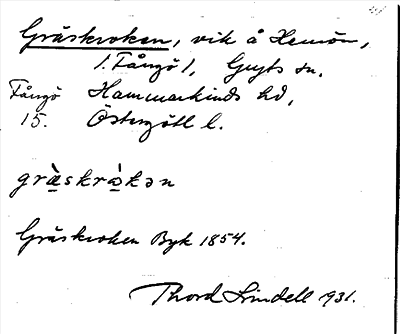 Gräskroken, vik å Hemön,
1. Fångö 1, Gryts sn.
Fångö Hammarkinds hd,
15. Östergötl l.
grä̀skrò̀kən
Gräskroken Byk 1854.
Thord Lindell 1931.